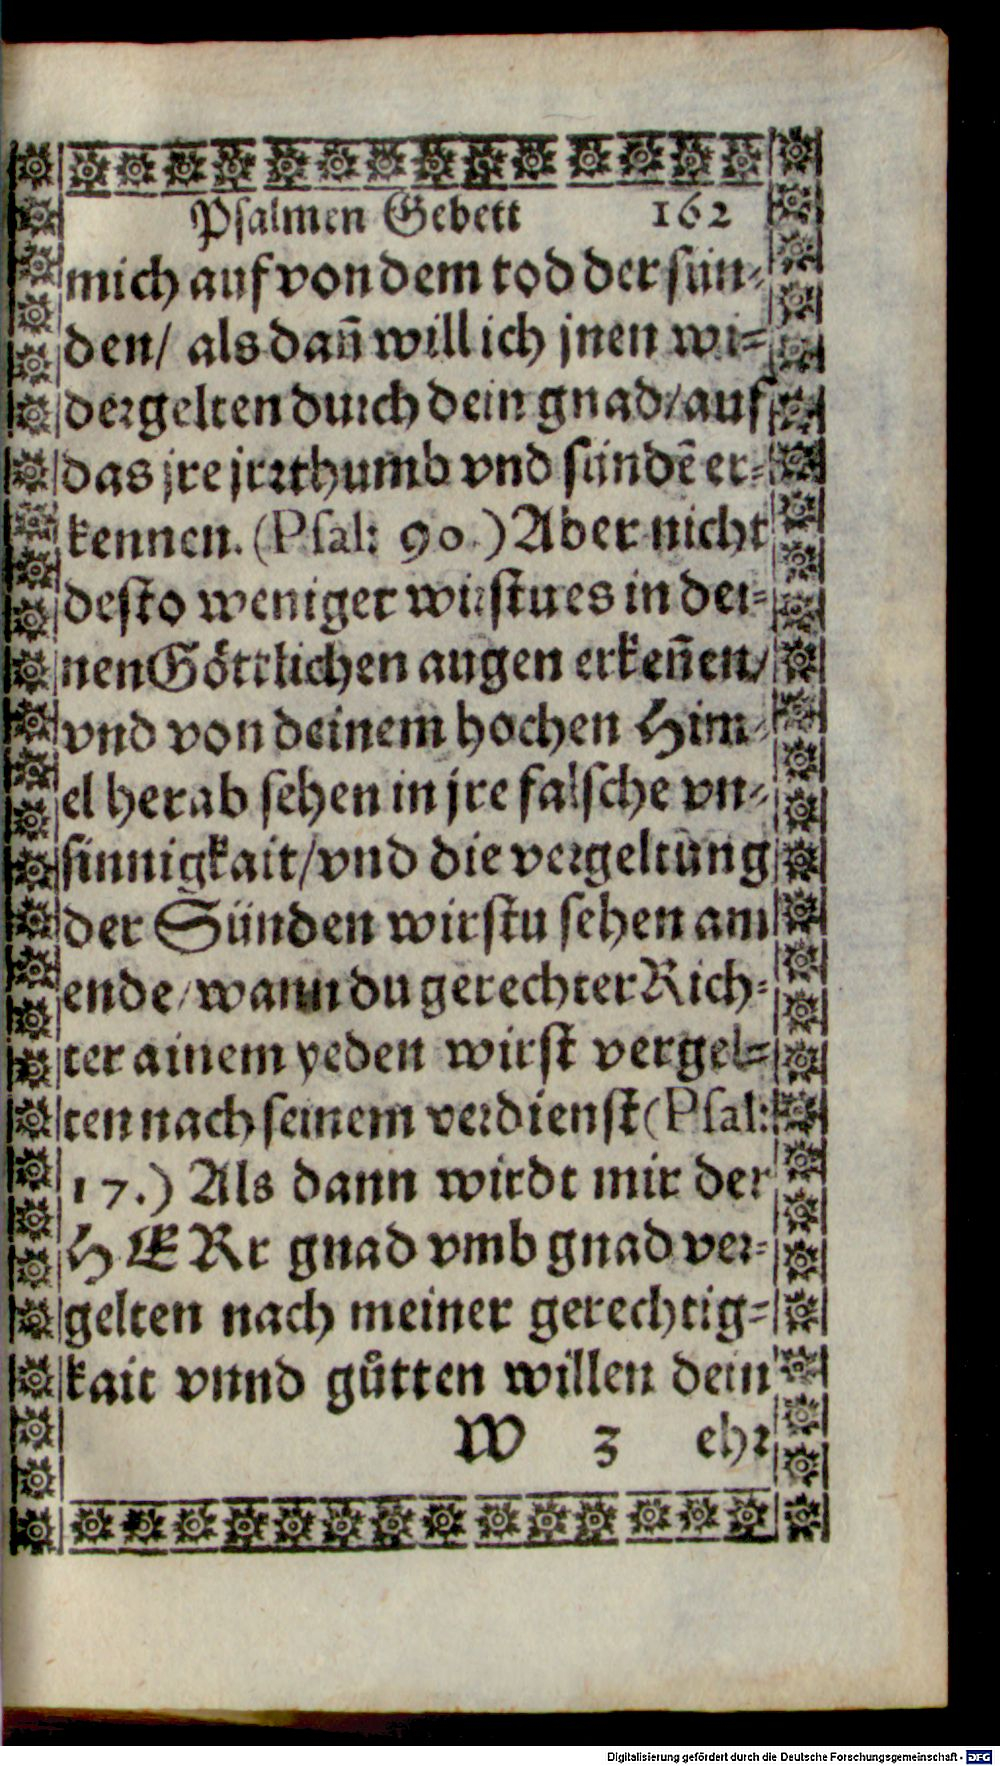 Psalmen Gebett 162
mich auf von dem tod der sün-
den/ als dañ will ich jnen wi-
dergelten durch dein gnad/auf
das jre jrrthumb vnd sündē er-
kennen. (Psal: 90.) Aber nicht
desto weniger wirstu es in dei-
nen Göttlichen augen erkeñen/
vnd von deinem hochen Him-
el herab sehen in jre falsche vn-
sinnigkait/vnd die vergeltung
der Sünden wirstu sehen am
ende/wann du gerechter Rich-
ter ainem yeden wirst vergel-
ten nach seinem verdienst (Psal:
17.) Als dann wirdt mir der
HERr gnad vmb gnad ver-
gelten nach meiner gerechtig-
kait vnnd gůtten willen dein
W 3 ehr
Digitalisierung gefördert durch die Deutsche Forschungsgemeinschaft - DFG